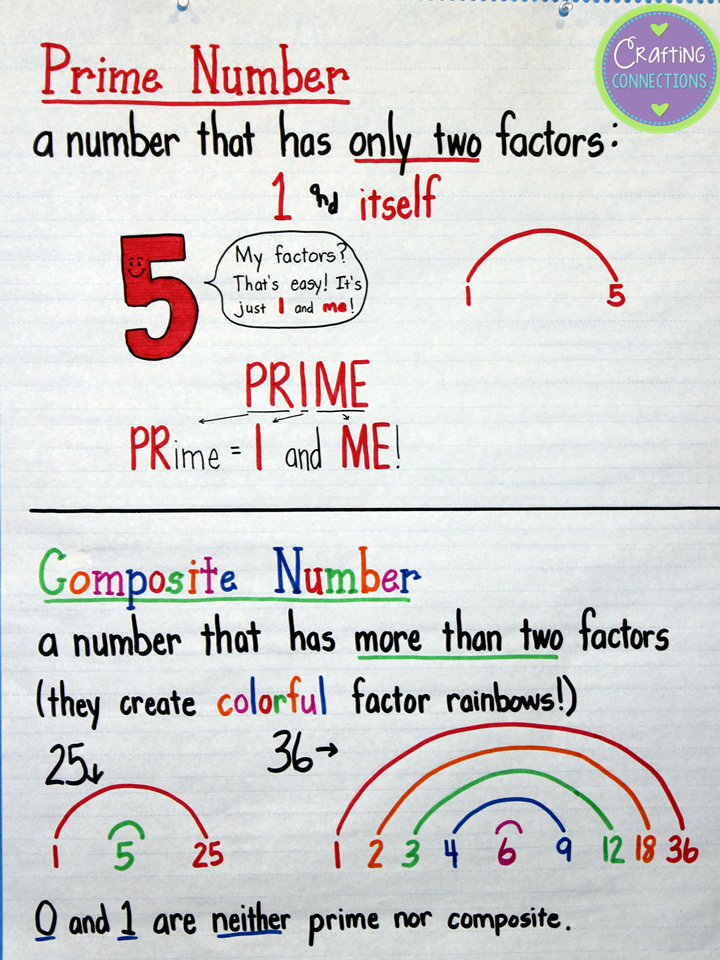 Crafting
CONNECTIONS
Prime Number
a number that has only two factors:
1 and itself
5
My factors?
That's easy! It's
just 1 and me!
1 5
PRIME
PRime = 1 and ME!
Composite Number
a number that has more than two factors
(they create colorful factor rainbows!)
25↓ 36→
1 5 25
1 2 3 4 6 9 12 18 36
0 and 1 are neither prime nor composite.